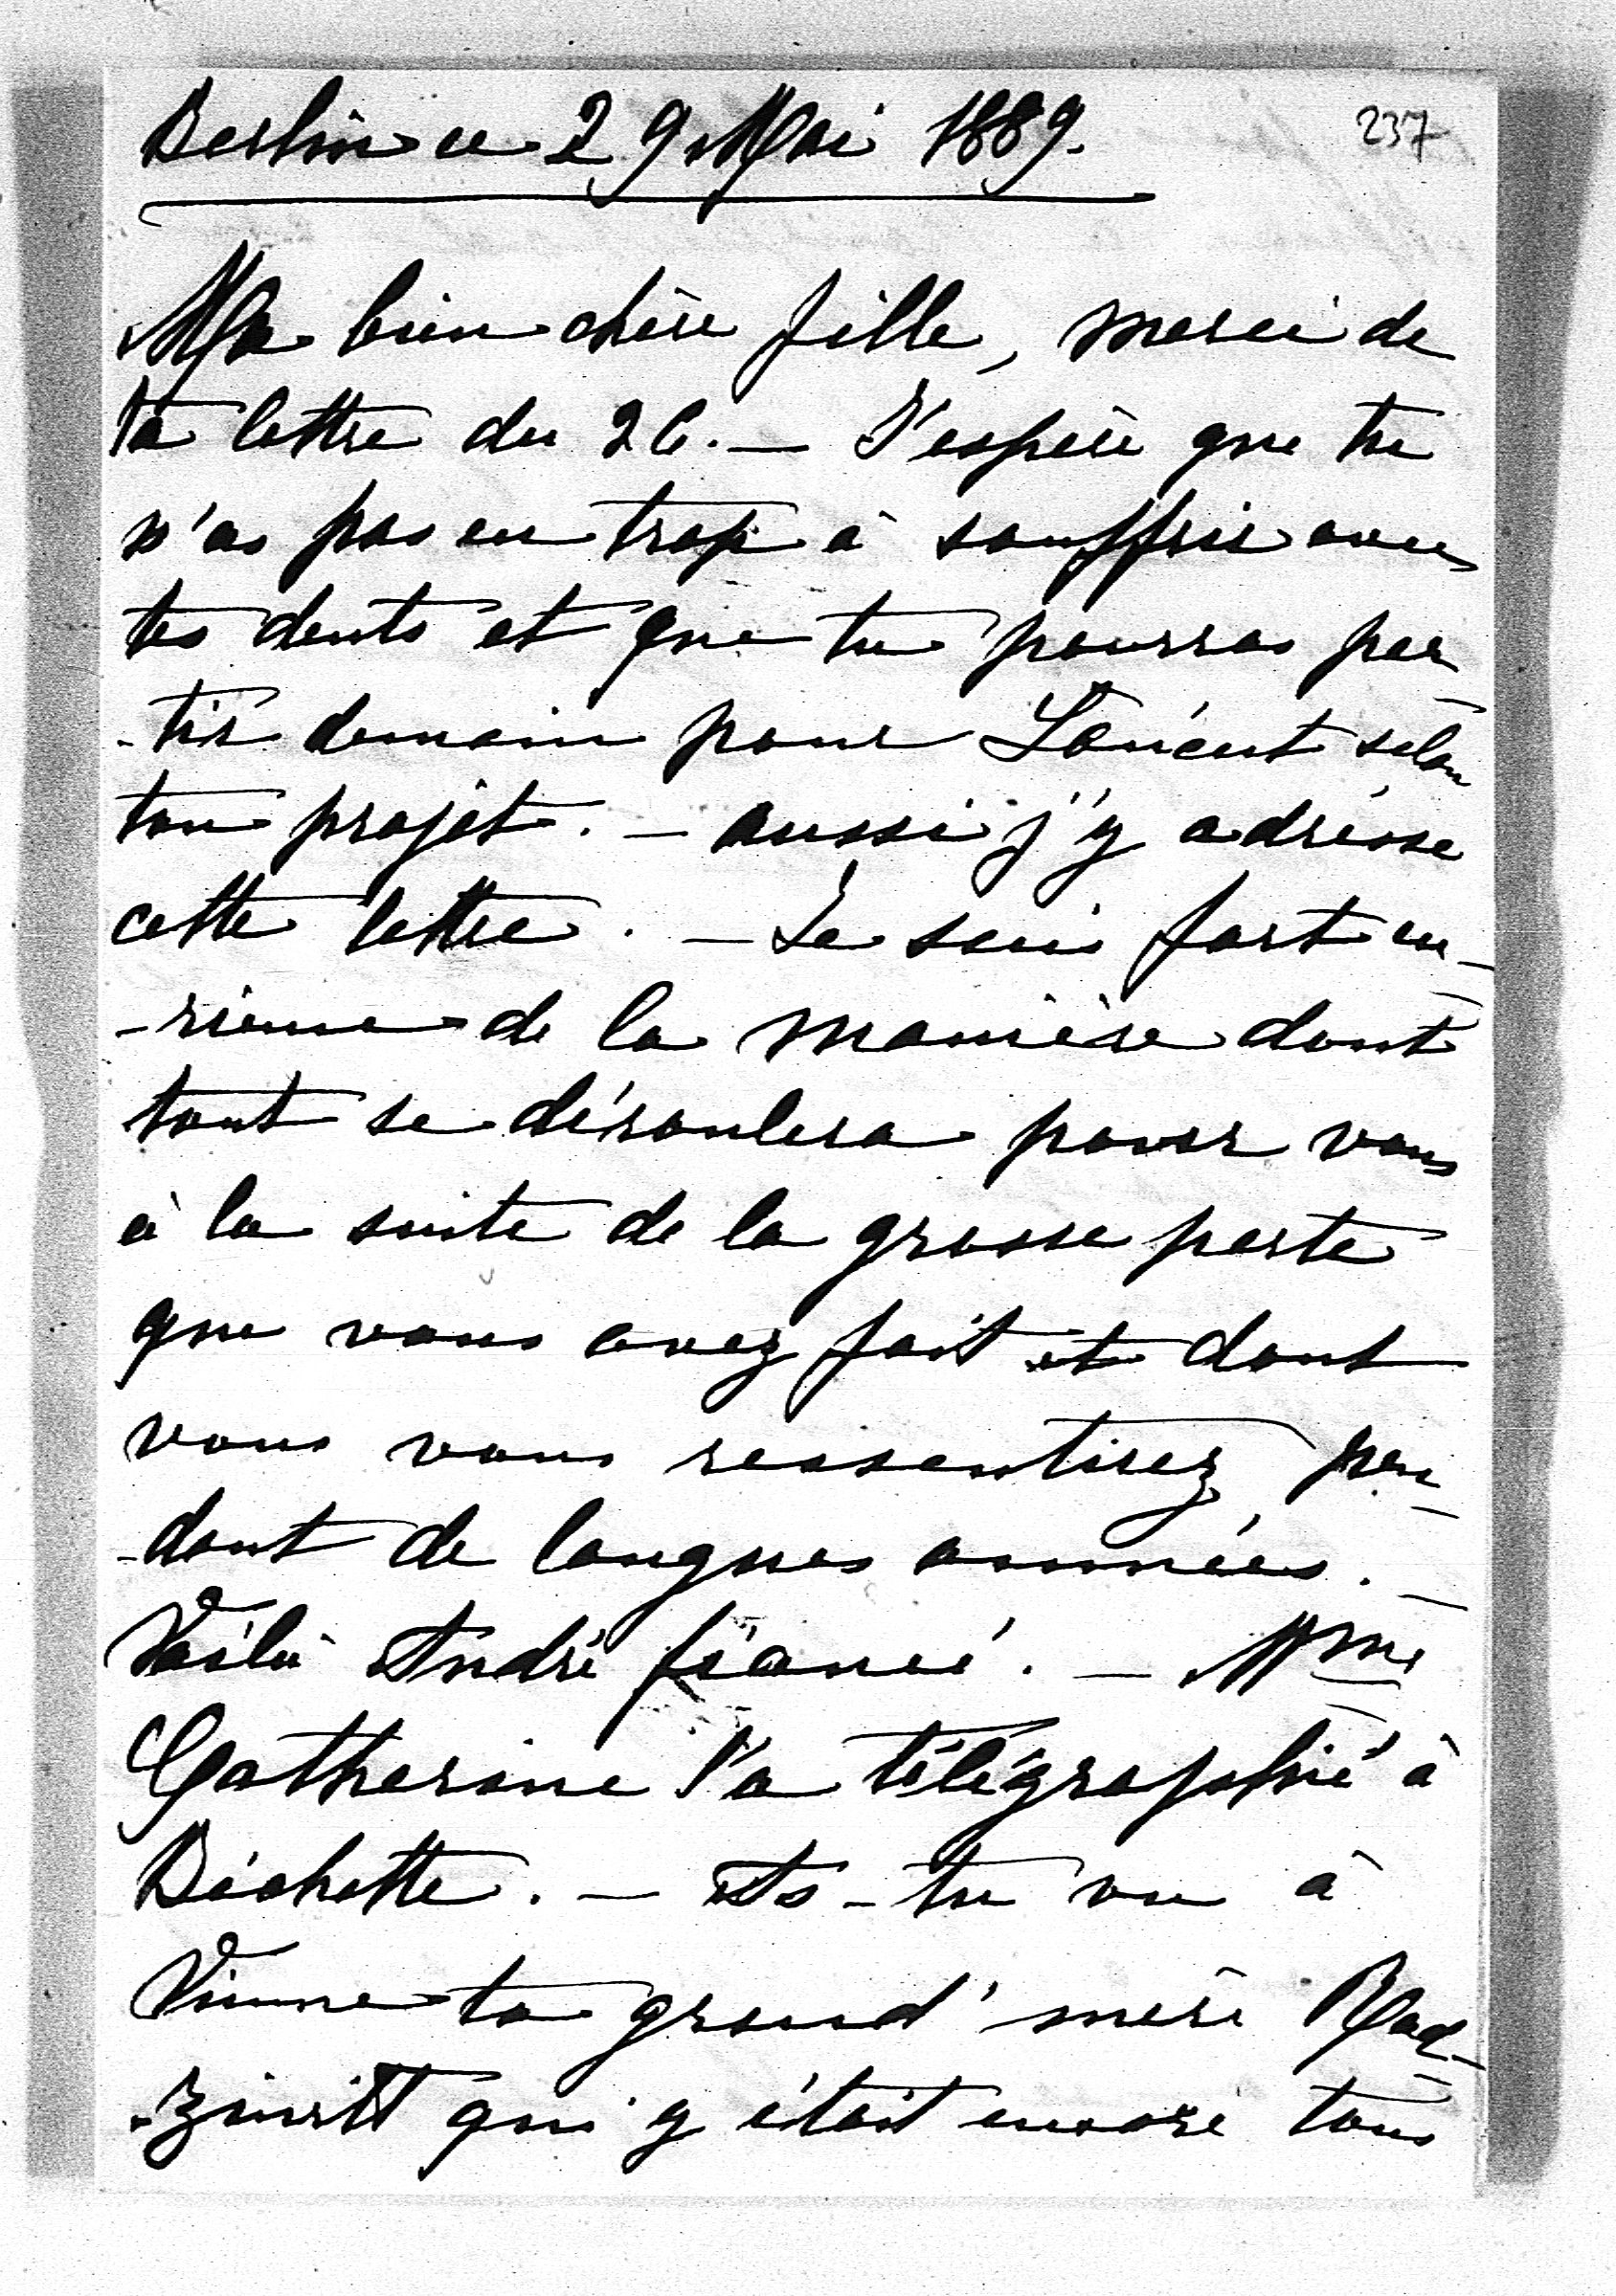 Berlin ce 29 Mai 1889.
237
Ma bien chère fille, merci de
ta lettre du 26. — J'espère que tu
n'as pas eu trop à souffrir avec
tes dents et que tu pourras par
-tir demain pour Łańcut selon
ton projet. — aussi j'y adresse
cette lettre. — Je suis fort cu-
-rieuse de la manière dont
tout se déroulera pour vous
à la suite de la grosse perte
que vous avez fait et dont
vous vous ressentirez pen-
-dant de longues années. —
Voilà André fiancé. — Mme
Catherine l'a télégraphié à
Bichette. — As-tu vu à
Vienne ta grand'mère Rad-
-ziwill qui y était encore tous